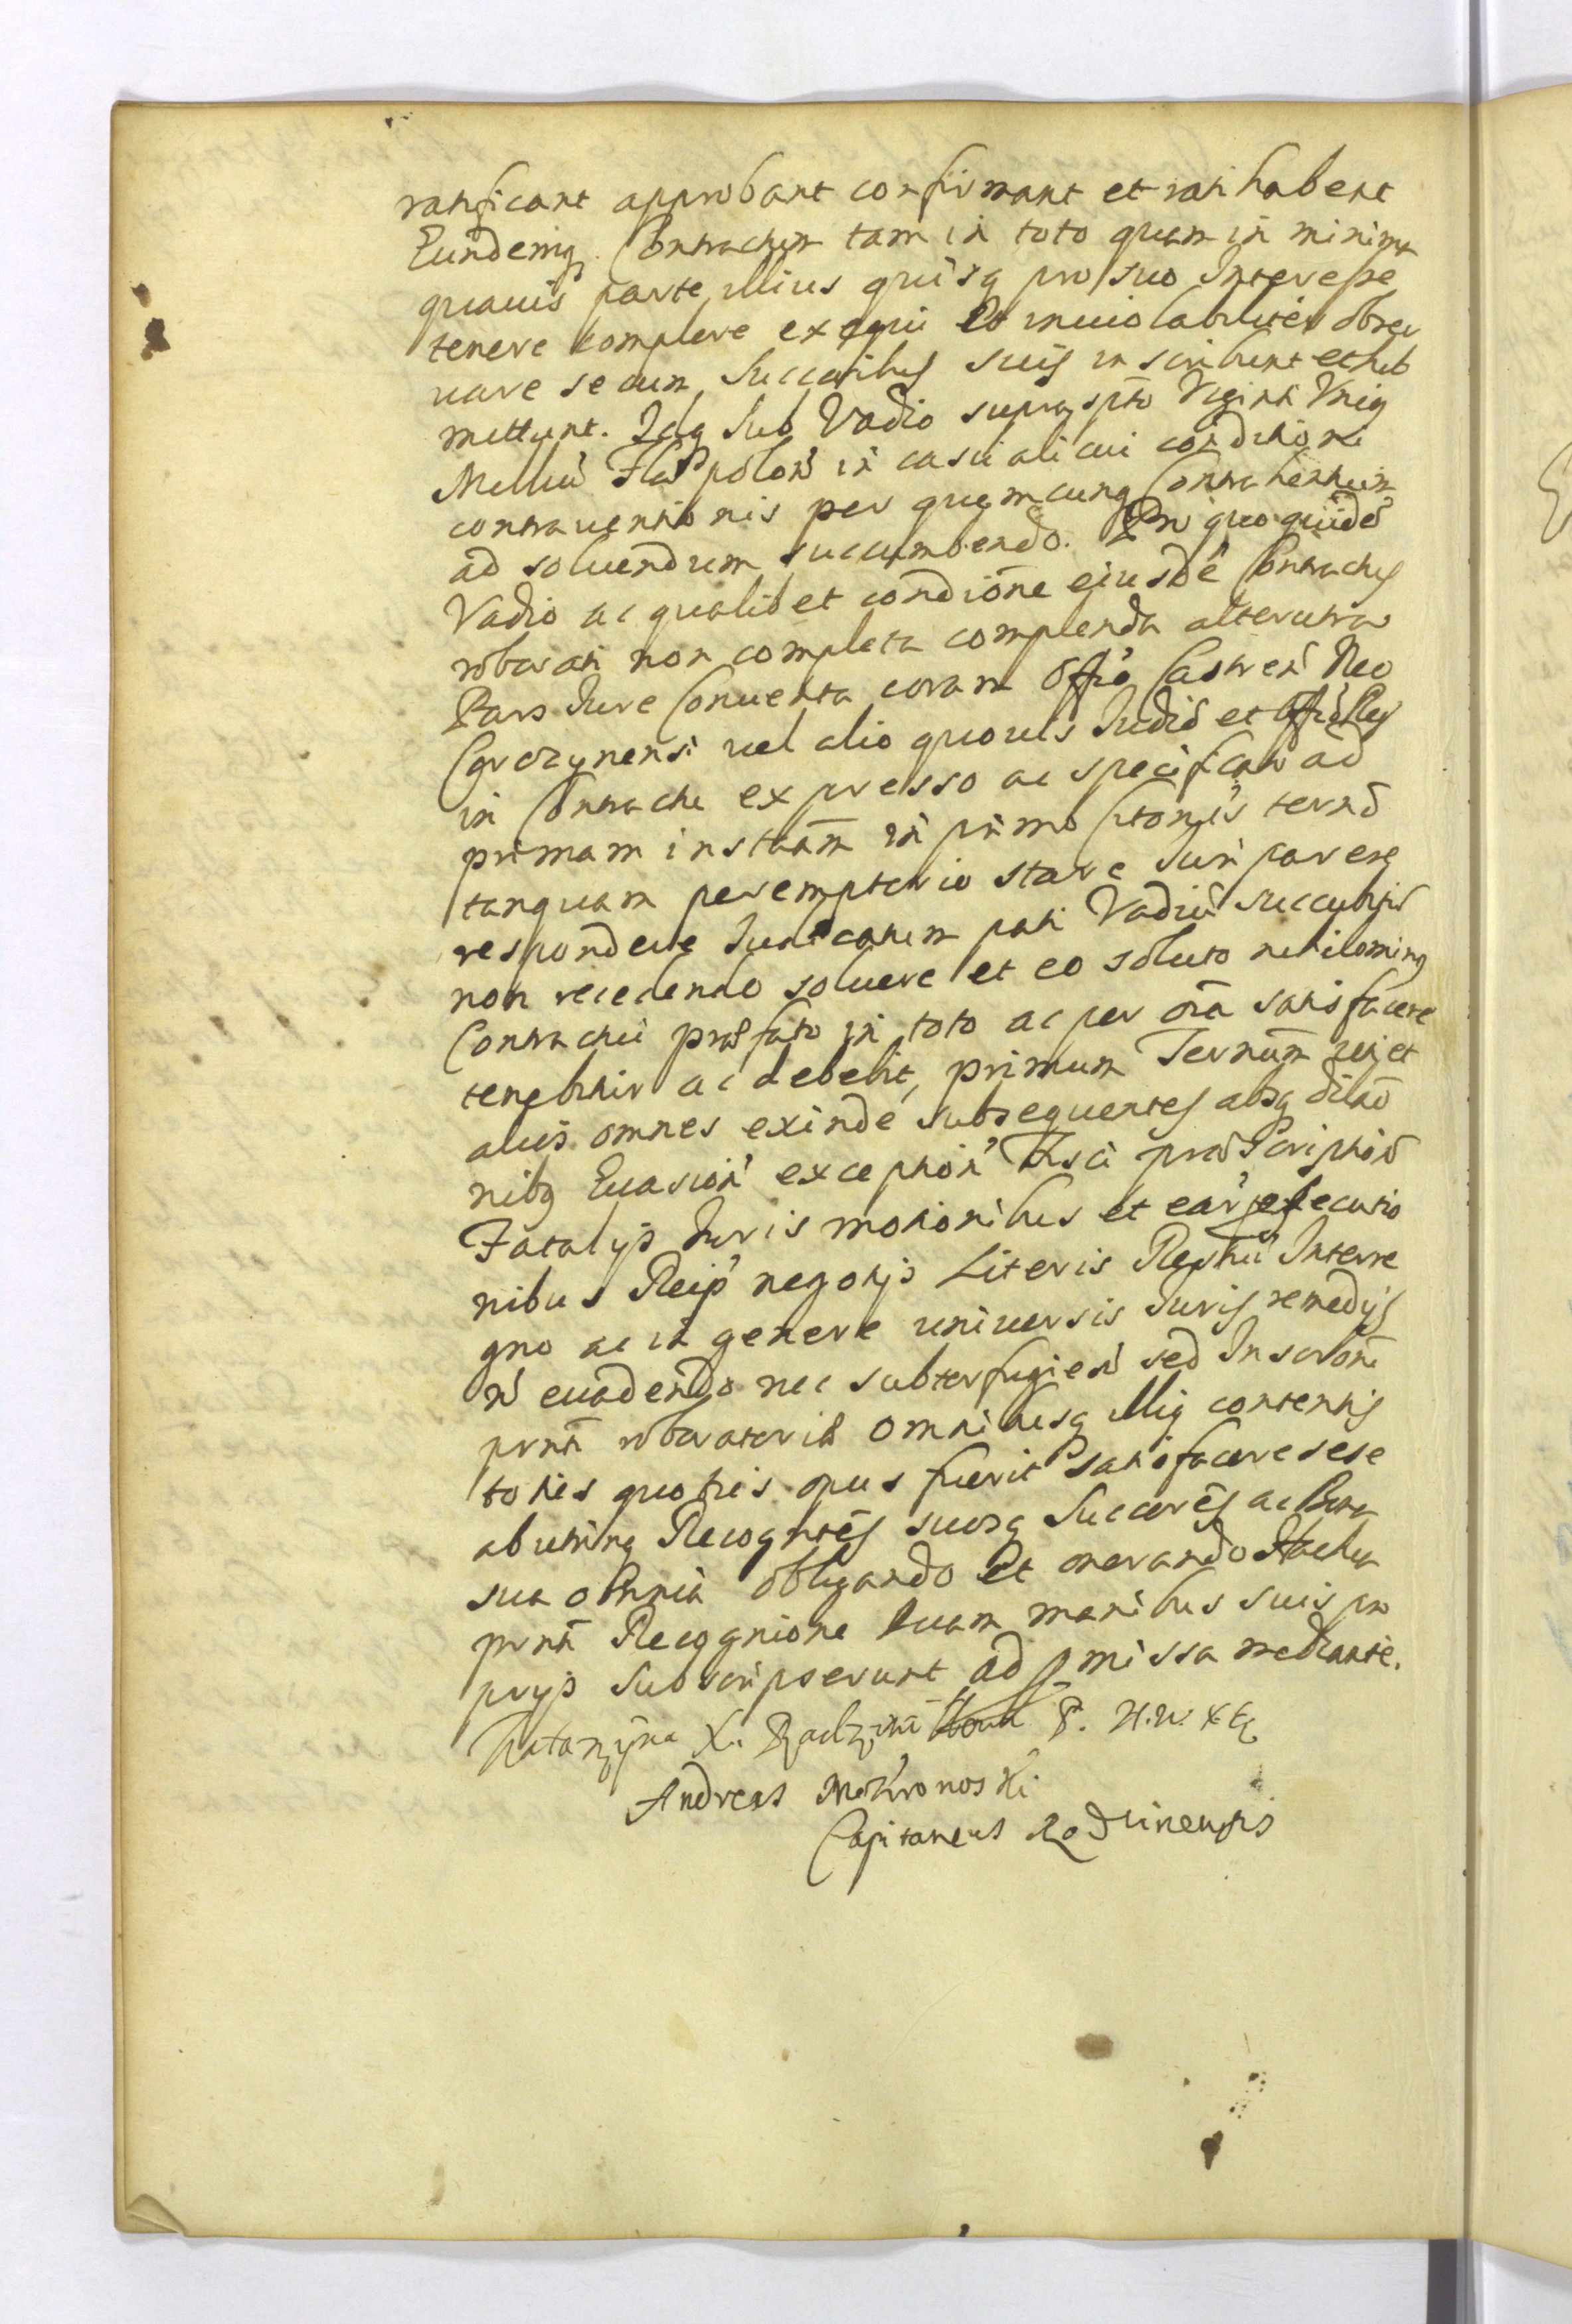 ratificant approbant confirmant et rati habent
Eundemq. Contractum tam in toto quam in minima
quauis parte illius quisq pro suo Interesse
tenere complere exequi Et inuiolabiliter obser
uare se cum Succoribus suis inscribunt et sub
mittunt. Idq Sub Vadio supra spto Viginti Vniq
Milliu Flor polon in casu alicui conditioni
contrauentionis per quemcunq Contrahentium
ad soluendum succumbendo. Pro quo quidé
Vadio ac qualibet condione eiusdé Contractus
roborati non completa complenda alterutra
Pars Iure Conuenta coram Offio Castren Neo
Corczynensi uel alio quouis Iudio et Offio Reg
in Contractu expresso ac specificato ad
primam instam in primo Citonis termo
tanquam peremptorio stare Iuri parere
respondere Iudicatum pati Vadiu succubit
non recedendo soluere et eo soluto nihilominq
Contractui praefato in toto ac per oia satisfacere
tenebitur ac debebit, primum Termum rei et
alios omnes exinde subsequentes absq dilao
nibq Euasion exception Fisci praescription
Fatalijs Iuris motionibus et ear executio
nibus Reip negotijs Literis Restii Interre
gno ac in genere uniuersis Iuris remedijs
n euadendo nec subterfugien sed Inscroni
prnti roboratoria omnibusq illiq contentis
toties quoties opus fuerit satisfacere sese
abutrinq Recognntes suosq Succores ac Bona
sua omnia obligando Et onerando Hacha
prnti Recognione quam manibus suis pro
prijs Subscripserunt ad pmissa mediante.
Katarzyna X. Radziwi P. H. W. X L
Andreas Mokronoski
Capitaneus Rodzinensis